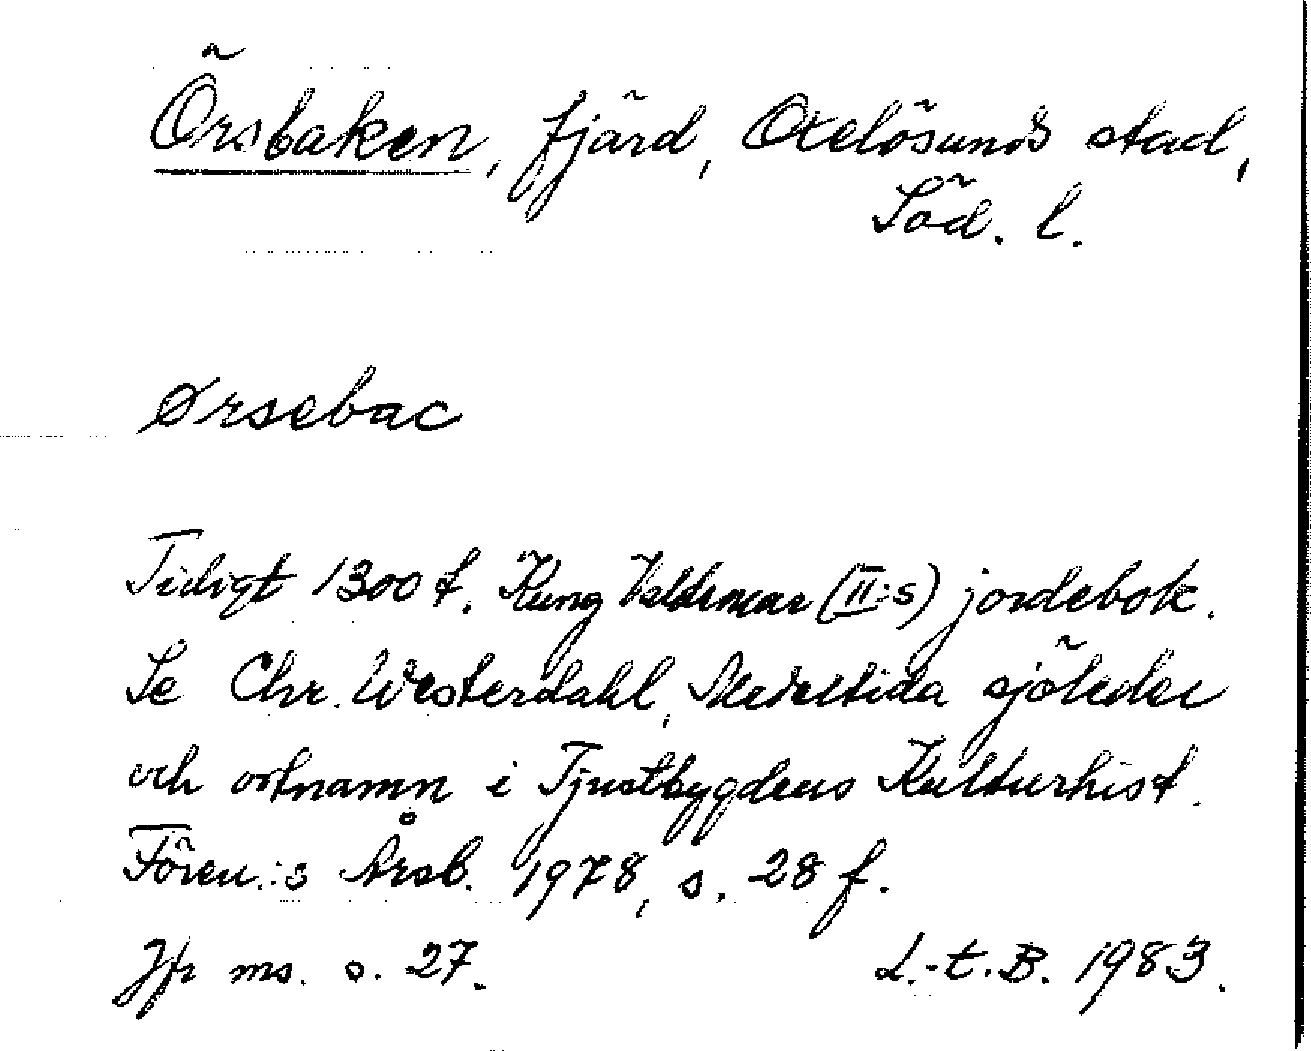 Örsbaken, fjärd, Oxelösunds stad,
Söd. l.
Ørsebac
Tidigt 1300 t. Kung Valdemar (II:s) jordebok.
Se Chr. Westerdahl, Medeltida sjöleder
och ortnamn i Tjustbygdens Kulturhist.
Fören.:s Årsb. 1978, s. 28 f.
Jfr ms. s. 27.
L.-t. B. 1983.